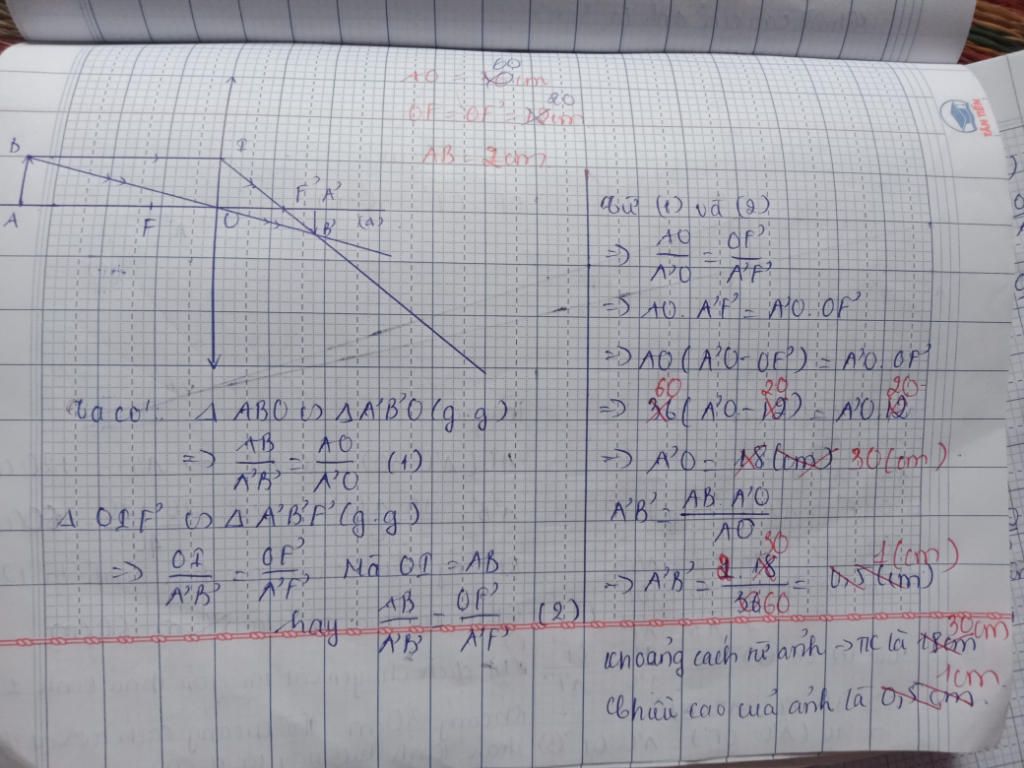 AO = 60cm
OF = OF' = 20cm
AB = 2cm
B
I
F' A'
A
F
O
B'
(Δ)
Ta có: Δ ABO ∽ Δ A'B'O (g.g)
=> AB/A'B' = AO/A'O (1)
Δ OIF' ∽ Δ A'B'F' (g.g)
=> OI/A'B' = OF'/A'F' Mà OI = AB
hay AB/A'B' = OF'/A'F' (2)
Từ (1) và (2)
=> AO/A'O = OF'/A'F'
=> AO. A'F' = A'O. OF'
=> AO (A'O - OF') = A'O. OF'
=> 36 60 (A'O - 12 20) = A'O 12 20
=> A'O = 18 (cm) 30 (cm)
A'B' = AB A'O/AO
=> A'B' = 2 18 30/36 60 = 0,5 (cm) 1 (cm)
Khoảng cách từ ảnh -> TK là 18cm 30cm
Chiều cao của ảnh là 0,5cm 1cm
TÂN TIẾN